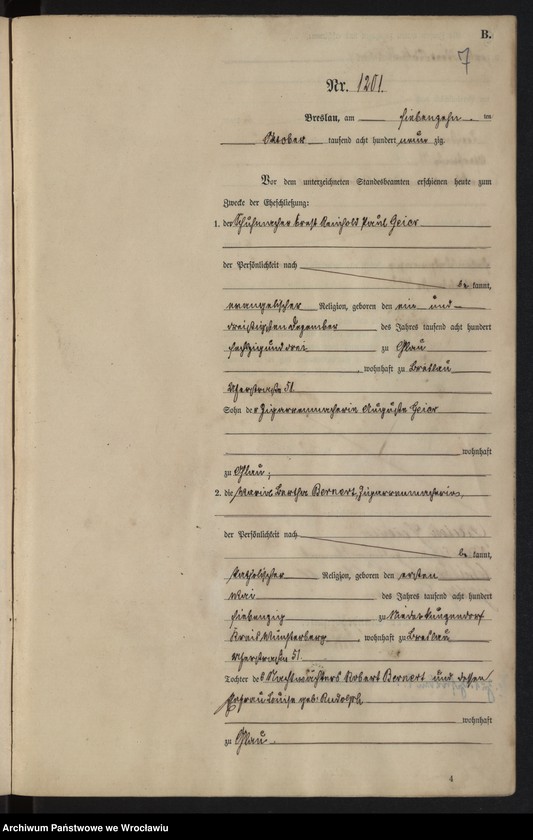 B.
7
Nr. 1201.
Breslau, am siebenzehn ten
Oktober tausend acht hundert neun zig.
Vor dem unterzeichneten Standesbeamten erschienen heute zum
Zwecke der Eheschließung:
1. der Schuhmacher Ernst Reinhold Paul Geier
der Persönlichkeit nach
be kannt,
evangelischer Religion, geboren den ein und
dreißigsten Dezember des Jahres tausend acht hundert
sechzig und drei zu Ohlau
, wohnhaft zu Breslau
Uferstraße 51.
Sohn der Zigarrenmacherin Auguste Geier
wohnhaft
zu Ohlau;
2. die Maria Bertha Bernert, Zigarrenmacherin,
der Persönlichkeit nach
be kannt,
katholischer Religion, geboren den ersten
Mai des Jahres tausend acht hundert
siebenzig zu
Kreis Münsterberg, wohnhaft zu Breslau
Uferstraße 51.
Tochter des Nachtwächters Robert Bernert und dessen
Ehefrau Louise geb. Rudolph
wohnhaft
zu Ohlau.
4
Archiwum Państwowe we Wrocławiu